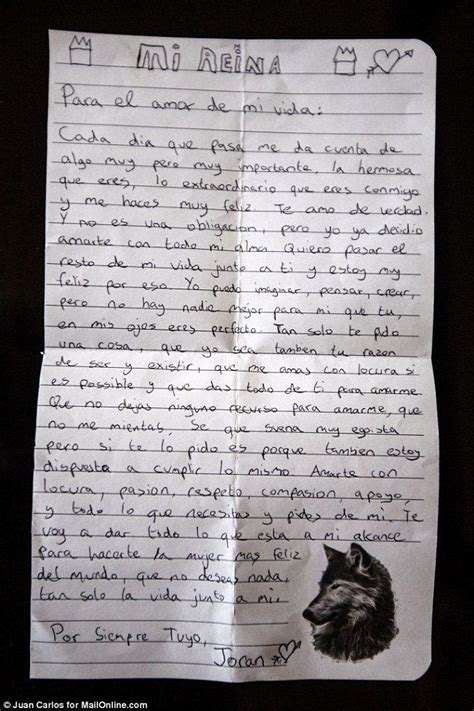 MI REINA
Para el amor de mi vida:
Cada dia que pasa me da cuenta de
algo muy pero muy importante, la hermosa
que eres, lo extraordinario que eres conmigo
y me haces muy feliz. Te amo de verdad.
Y no es una obligacion, pero yo ya decidio
amarte con todo mi alma. Quiero pasar el
resto de mi vida junto a ti y estoy muy
feliz por eso. Yo puedo imaginar, pensar, crear,
pero no hay nadie mejor para mi que tu,
en mis ojos eres perfecto. Tan solo te pido
una cosa, que yo sea tamben tu razon
de ser y existir, que me amas con locura si
es possible y que das todo de ti para amarme.
Que no dejas ninguno recurso para amarme, que
no me mientas. Se que suena muy egoista
pero si te lo pido es porque tamben estoy
dispuesta a cumplir lo mismo. Amarte con
locura, pasion, respeto, compasion, apoyo,
y todo lo que necesitas y pides de mi. Te
voy a dar todo lo que esta a mi alcance
para hacerte la mujer mas feliz
del mundo, que no deseas nada,
tan solo la vida junto a mi.
Por Siempre Tuyo,
Joran
© Juan Carlos for MailOnline.com